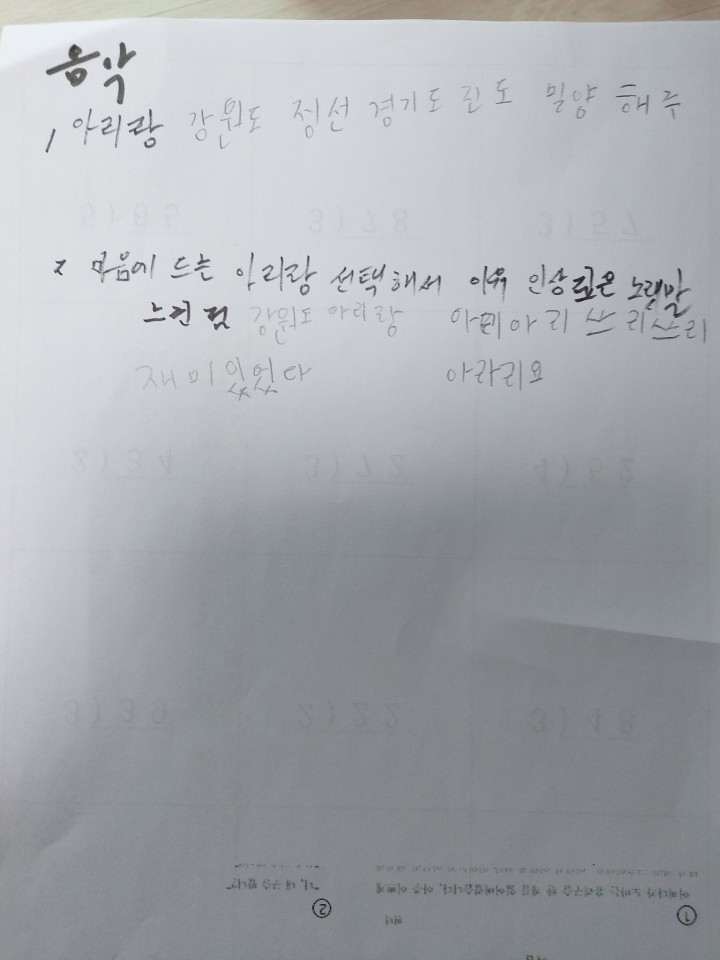 음악
1 아리랑 강원도 정선 경기도 린도 밀양 해주
2 마음에 드는 아리랑 선택해서 이유 인상깊은 노랫말
느낀 점 강원도 아리랑 아리아리 쓰리쓰리
재미있었다 아라리요